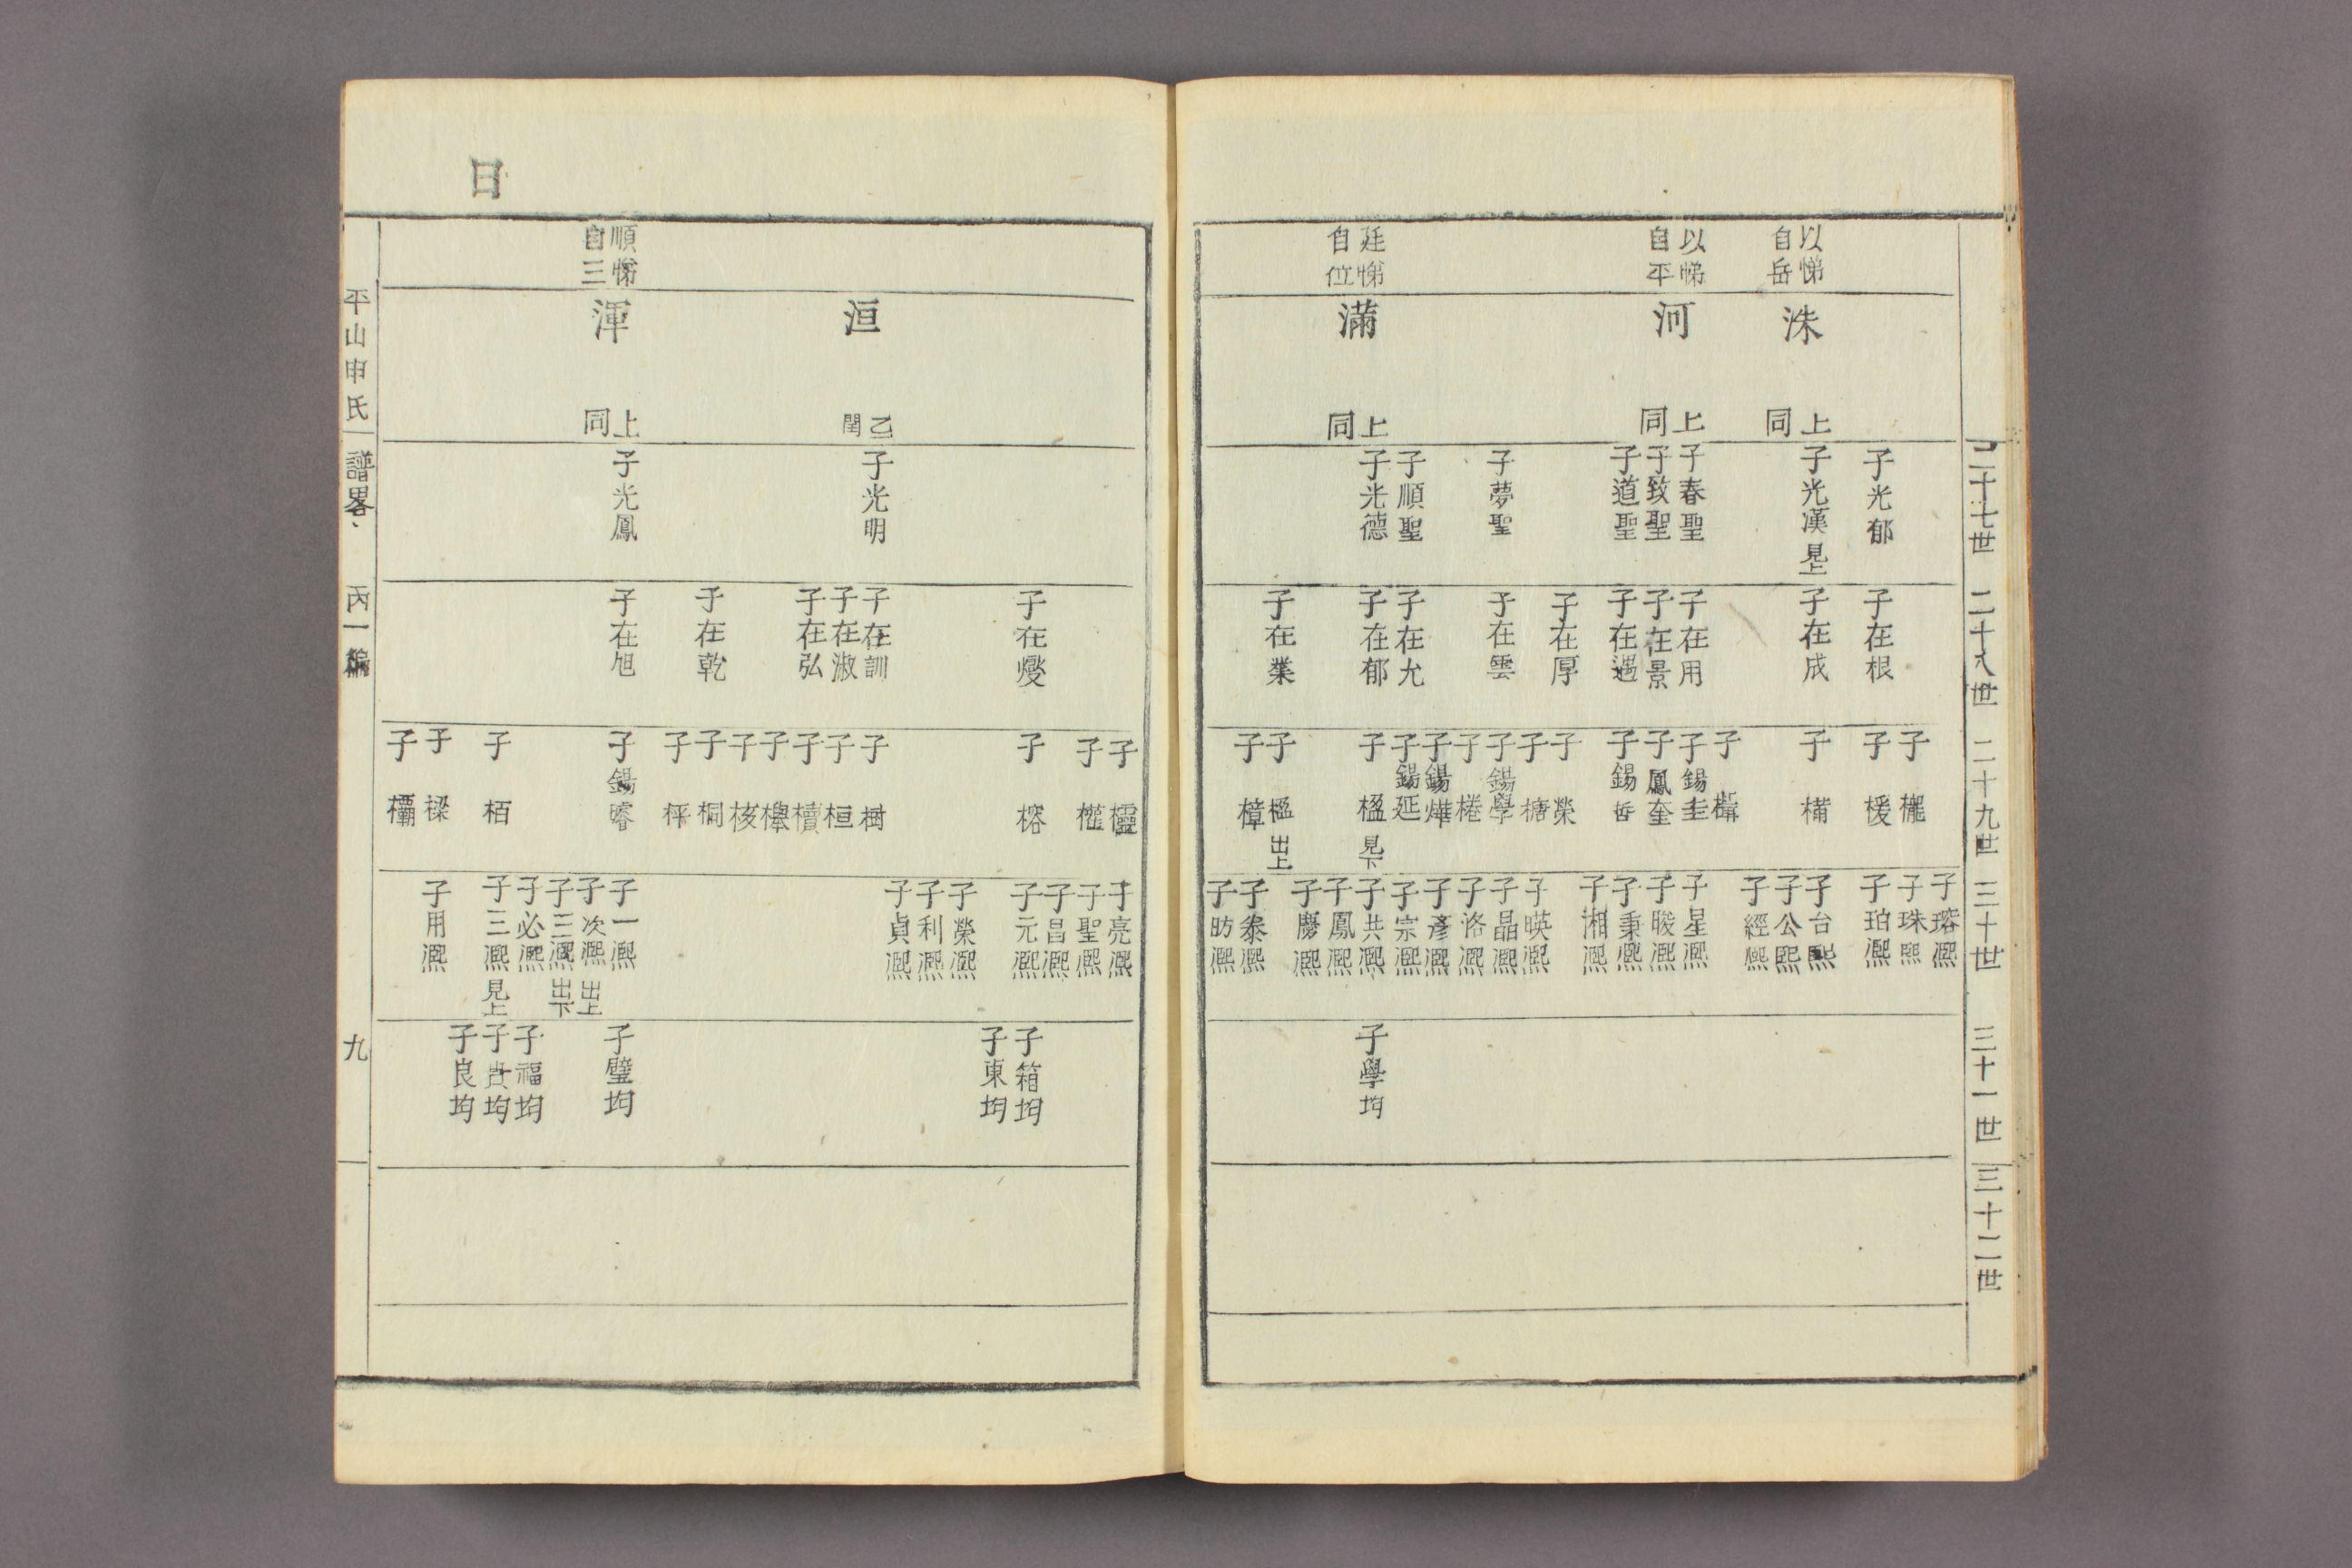 二十七世
二十八世
二十九世
三十世
三十一世
三十二世
以悌
自岳
以悌
自平
廷悌
自位
洙
上同
河
上同
滿
上同
子光郁
子光漢 見上
子春聖
子致聖
子道聖
子夢聖
子順聖
子光德
子在根
子在成
子在用
子在景
子在遇
子在厚
子在雲
子在允
子在郁
子在業
子
子楥
子
子
子錫圭
子鳳奎
子錫哲
子榮
子榶
子錫學
子棬
子錫燁
子錫延
子楹 見下
子楹 出上
子樟
子瑢熙
子珠熙
子珀熙
子台熙
子公熙
子經熙
子星熙
子晙熙
子秉熙
子湘熙
子暎熙
子晶熙
子洛熙
子彥熙
子宗熙
子共熙
子鳳熙
子慶熙
子泰熙
子昉熙
子學均
日
順悌
自三
洹
乙閏
渾
上同
子光明
子光鳳
子在燮
子在訓
子在淑
子在弘
子在乾
子在旭
子欞
子欌
子榕
子樹
子桓
子櫝
子
子核
子桐
子枰
子錫睿
子栢
子樑
子欛
子亮熙
子聖熙
子昌熙
子元熙
子榮熙
子利熙
子貞熙
子一熙
子次熙 出上
子三熙 出下
子必熙
子三熙 見上
子用熙
子箱均
子東均
子璧均
子福均
子貴均
子良均
平山申氏 譜畧 丙一編 九